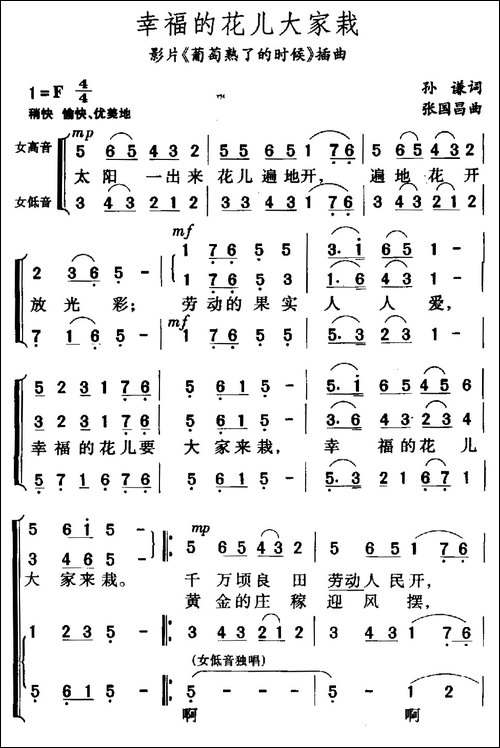 幸福的花儿大家栽
影片《葡萄熟了的时候》插曲
1=F 4/4
孙 谦词
稍快 愉快、优美地
张国昌曲
mp
女高音 5 65 43 2 | 5 65 31 76 | 5 65 43 2
太阳 一出来 花儿 遍地开, 遍地 花开
女低音 3 43 21 2 | 3 43 31 76 | 3 43 21 2
mf
1 76 5 5 | 3. 1 65 1 -
2 36 5 - | 1 76 5 3 | 3. 1 65 1 -
放光彩; 劳动的果实人人爱,
mf
7 16 5 - | 1 76 5 5 | 5. 3 22 1 -
5 23 17 6 | 5 61 5 - | 5. 1 65 45 6
3 23 17 6 | 5 61 5 - | 5. 1 43 23 4
幸福的花儿要 大家来栽, 幸 福的花儿
5 71 67 6 | 5 61 5 - | 5. 3 21 67 1
5 61 5
3 46 5
mp
5 65 43 2 | 5 65 1 76
大家来栽。 千万顷良田 劳动人民开,
黄金的庄稼 迎风摆,
1 23 5 - | 3 43 21 2 | 3 43 1 76
(女低音独唱)
5 61 5 - | 5 - - - | 5 - - 5
啊 啊